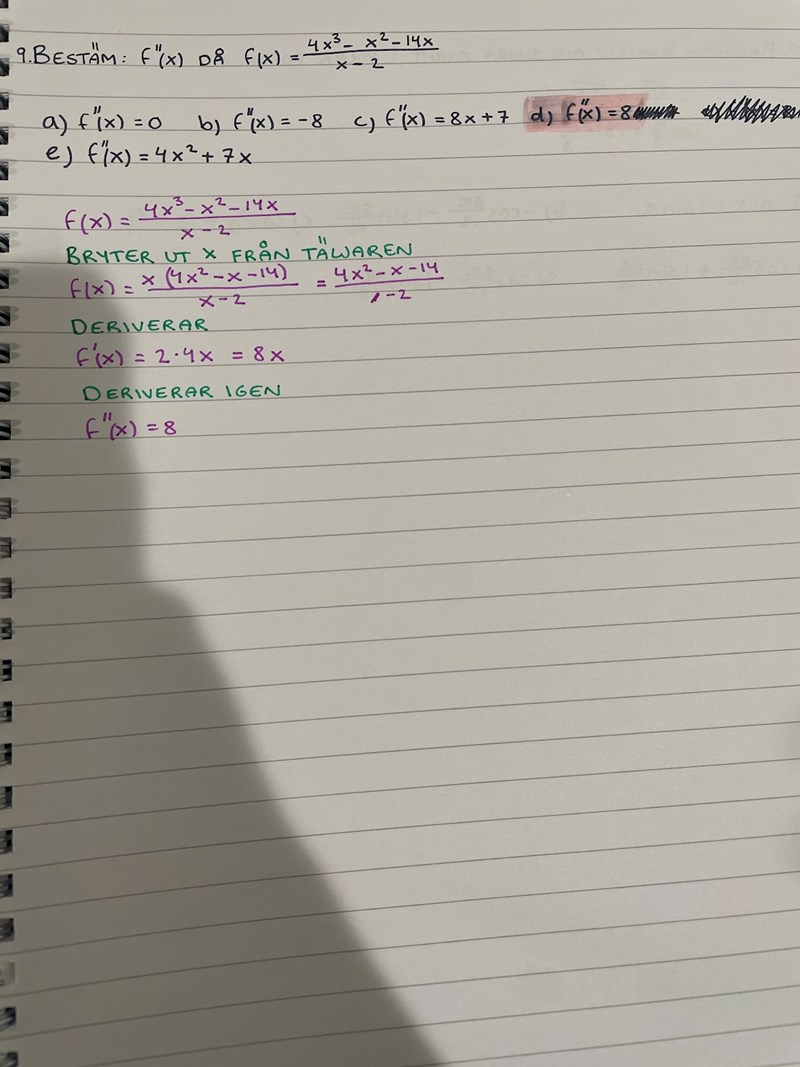 9. BESTÄM: f''(x) DÅ f(x) = (4x³ - x² - 14x)/(x - 2)
a) f''(x) = 0 b) f''(x) = -8 c) f''(x) = 8x + 7 d) f''(x) = 8
e) f''(x) = 4x² + 7x
f(x) = (4x³ - x² - 14x)/(x - 2)
BRYTER UT X FRÅN TÄLJAREN
f(x) = x(4x² - x - 14)/(x - 2) = (4x² - x - 14)/(1 - 2)
DERIVERAR
f'(x) = 2·4x = 8x
DERIVERAR IGEN
f''(x) = 8